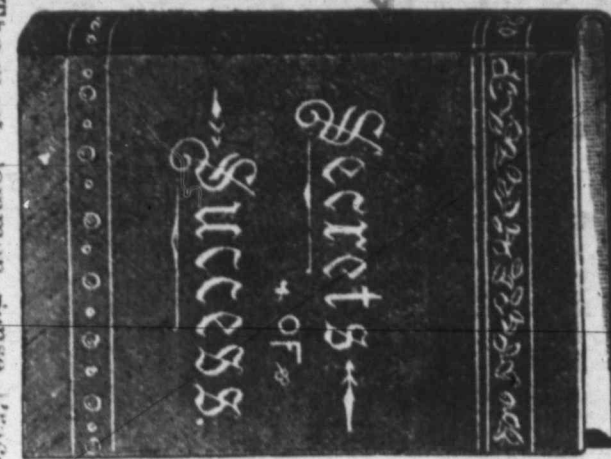 Secrets
OF
Success.